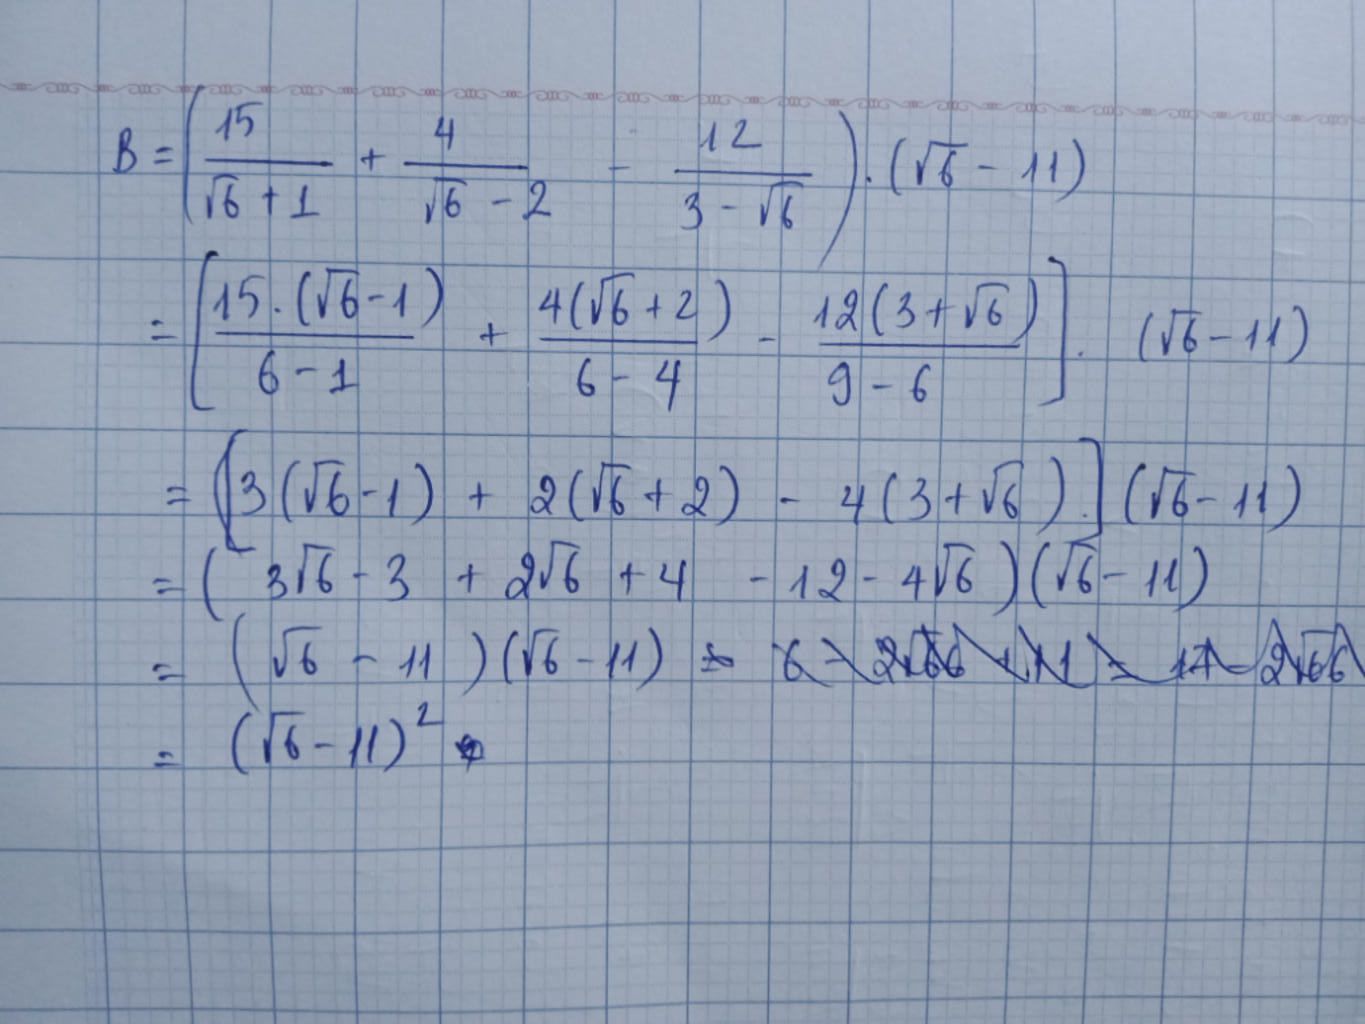 B = ( 15/(√6 + 1) + 4/(√6 - 2) - 12/(3 - √6) ) . (√6 - 11)
= [ 15.(√6 - 1)/(6 - 1) + 4(√6 + 2)/(6 - 4) - 12(3 + √6)/(9 - 6) ] . (√6 - 11)
= [ 3(√6 - 1) + 2(√6 + 2) - 4(3 + √6) . ] (√6 - 11)
= ( 3√6 - 3 + 2√6 + 4 - 12 - 4√6 ) (√6 - 11)
= ( √6 - 11 ) (√6 - 11) = 6 - 2√66 + 11 = 17 - 2√66
= (√6 - 11)²